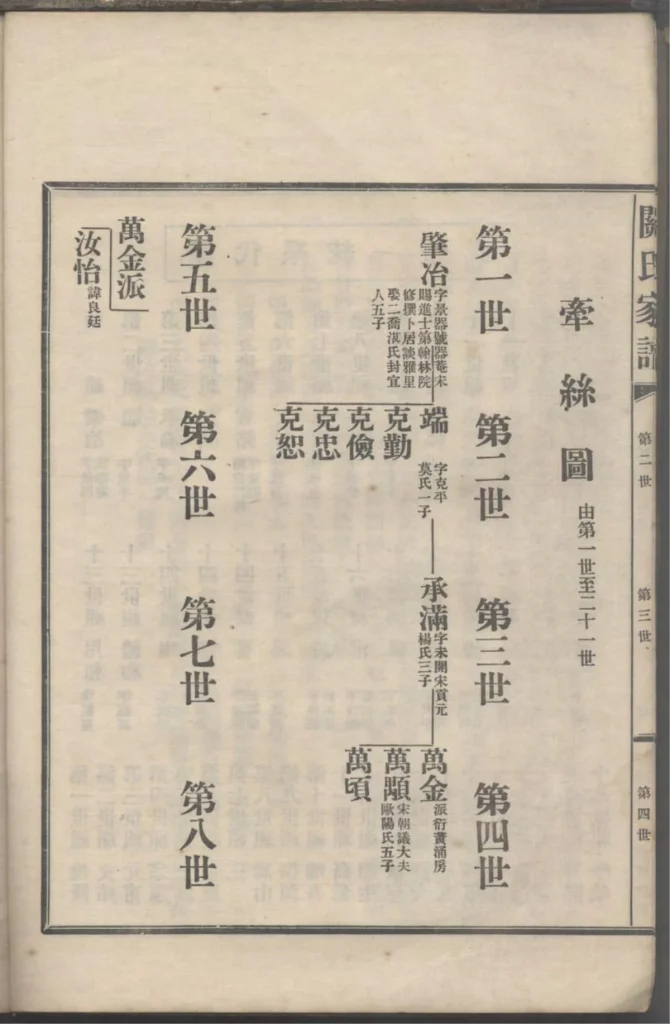 關氏家譜
第二世
第三世
第四世
牽絲圖
由第一世至二十一世
第一世
第二世
第三世
第四世
肇冶
字景器號器菴宋
賜進士第翰林院
修撰卜居談雅里
娶二喬淇氏封宜
人五子
端
字克平
莫氏一子
克勤
克儉
克忠
克恕
承滿
字未開宋貢元
楊氏三子
萬金
派衍黃涌房
萬顒
宋朝議大夫
歐陽氏五子
萬頃
第五世
第六世
第七世
第八世
萬金派
汝怡
諱良廷